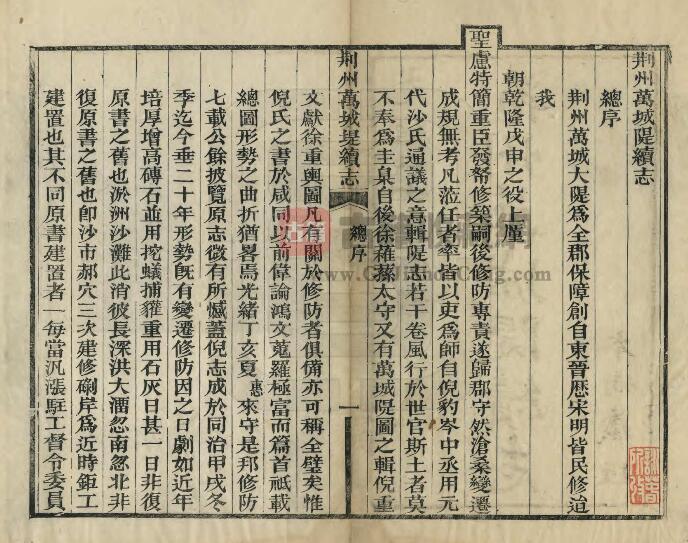 荆州萬城隄續志
總序
荆州萬城大隄爲全郡保障創自東晉歷宋明皆民修迨
我
朝乾隆戊申之役上廑
聖慮特簡重臣發帑修築嗣後修防專責遂歸郡守然滄桑變遷
成規無考凡蒞任者率皆以吏爲師自倪豹岑中丞用元
代沙氏通議之意輯隄志若干卷風行於世官斯土者莫
不奉爲圭臬自後徐蘿蓀太守又有萬城隄圖之輯倪重
荆州萬城堤續志
總序
一
文獻徐重輿圖凡有關於修防者俱備亦可稱全璧矣惟
倪氏之書於咸同以前偉論鴻文蒐羅極富而篇首祗載
總圖形勢之曲折猶畧焉光緒丁亥夏惠來守是邦修防
七載公餘披覽原志微有所憾蓋倪志成於同治甲戌冬
季迄今垂二十年形勢旣有變遷修防因之日劇如近年
培厚增高磚石並用挖蟻捕獾重用石灰日甚一日非復
原書之舊也淤洲沙灘此消彼長深洪大溜忽南忽北非
復原書之舊也卽沙市郝穴三次建修磯岸爲近時鉅工
建置也其不同原書建置者一每當汎漲駐工督令委員